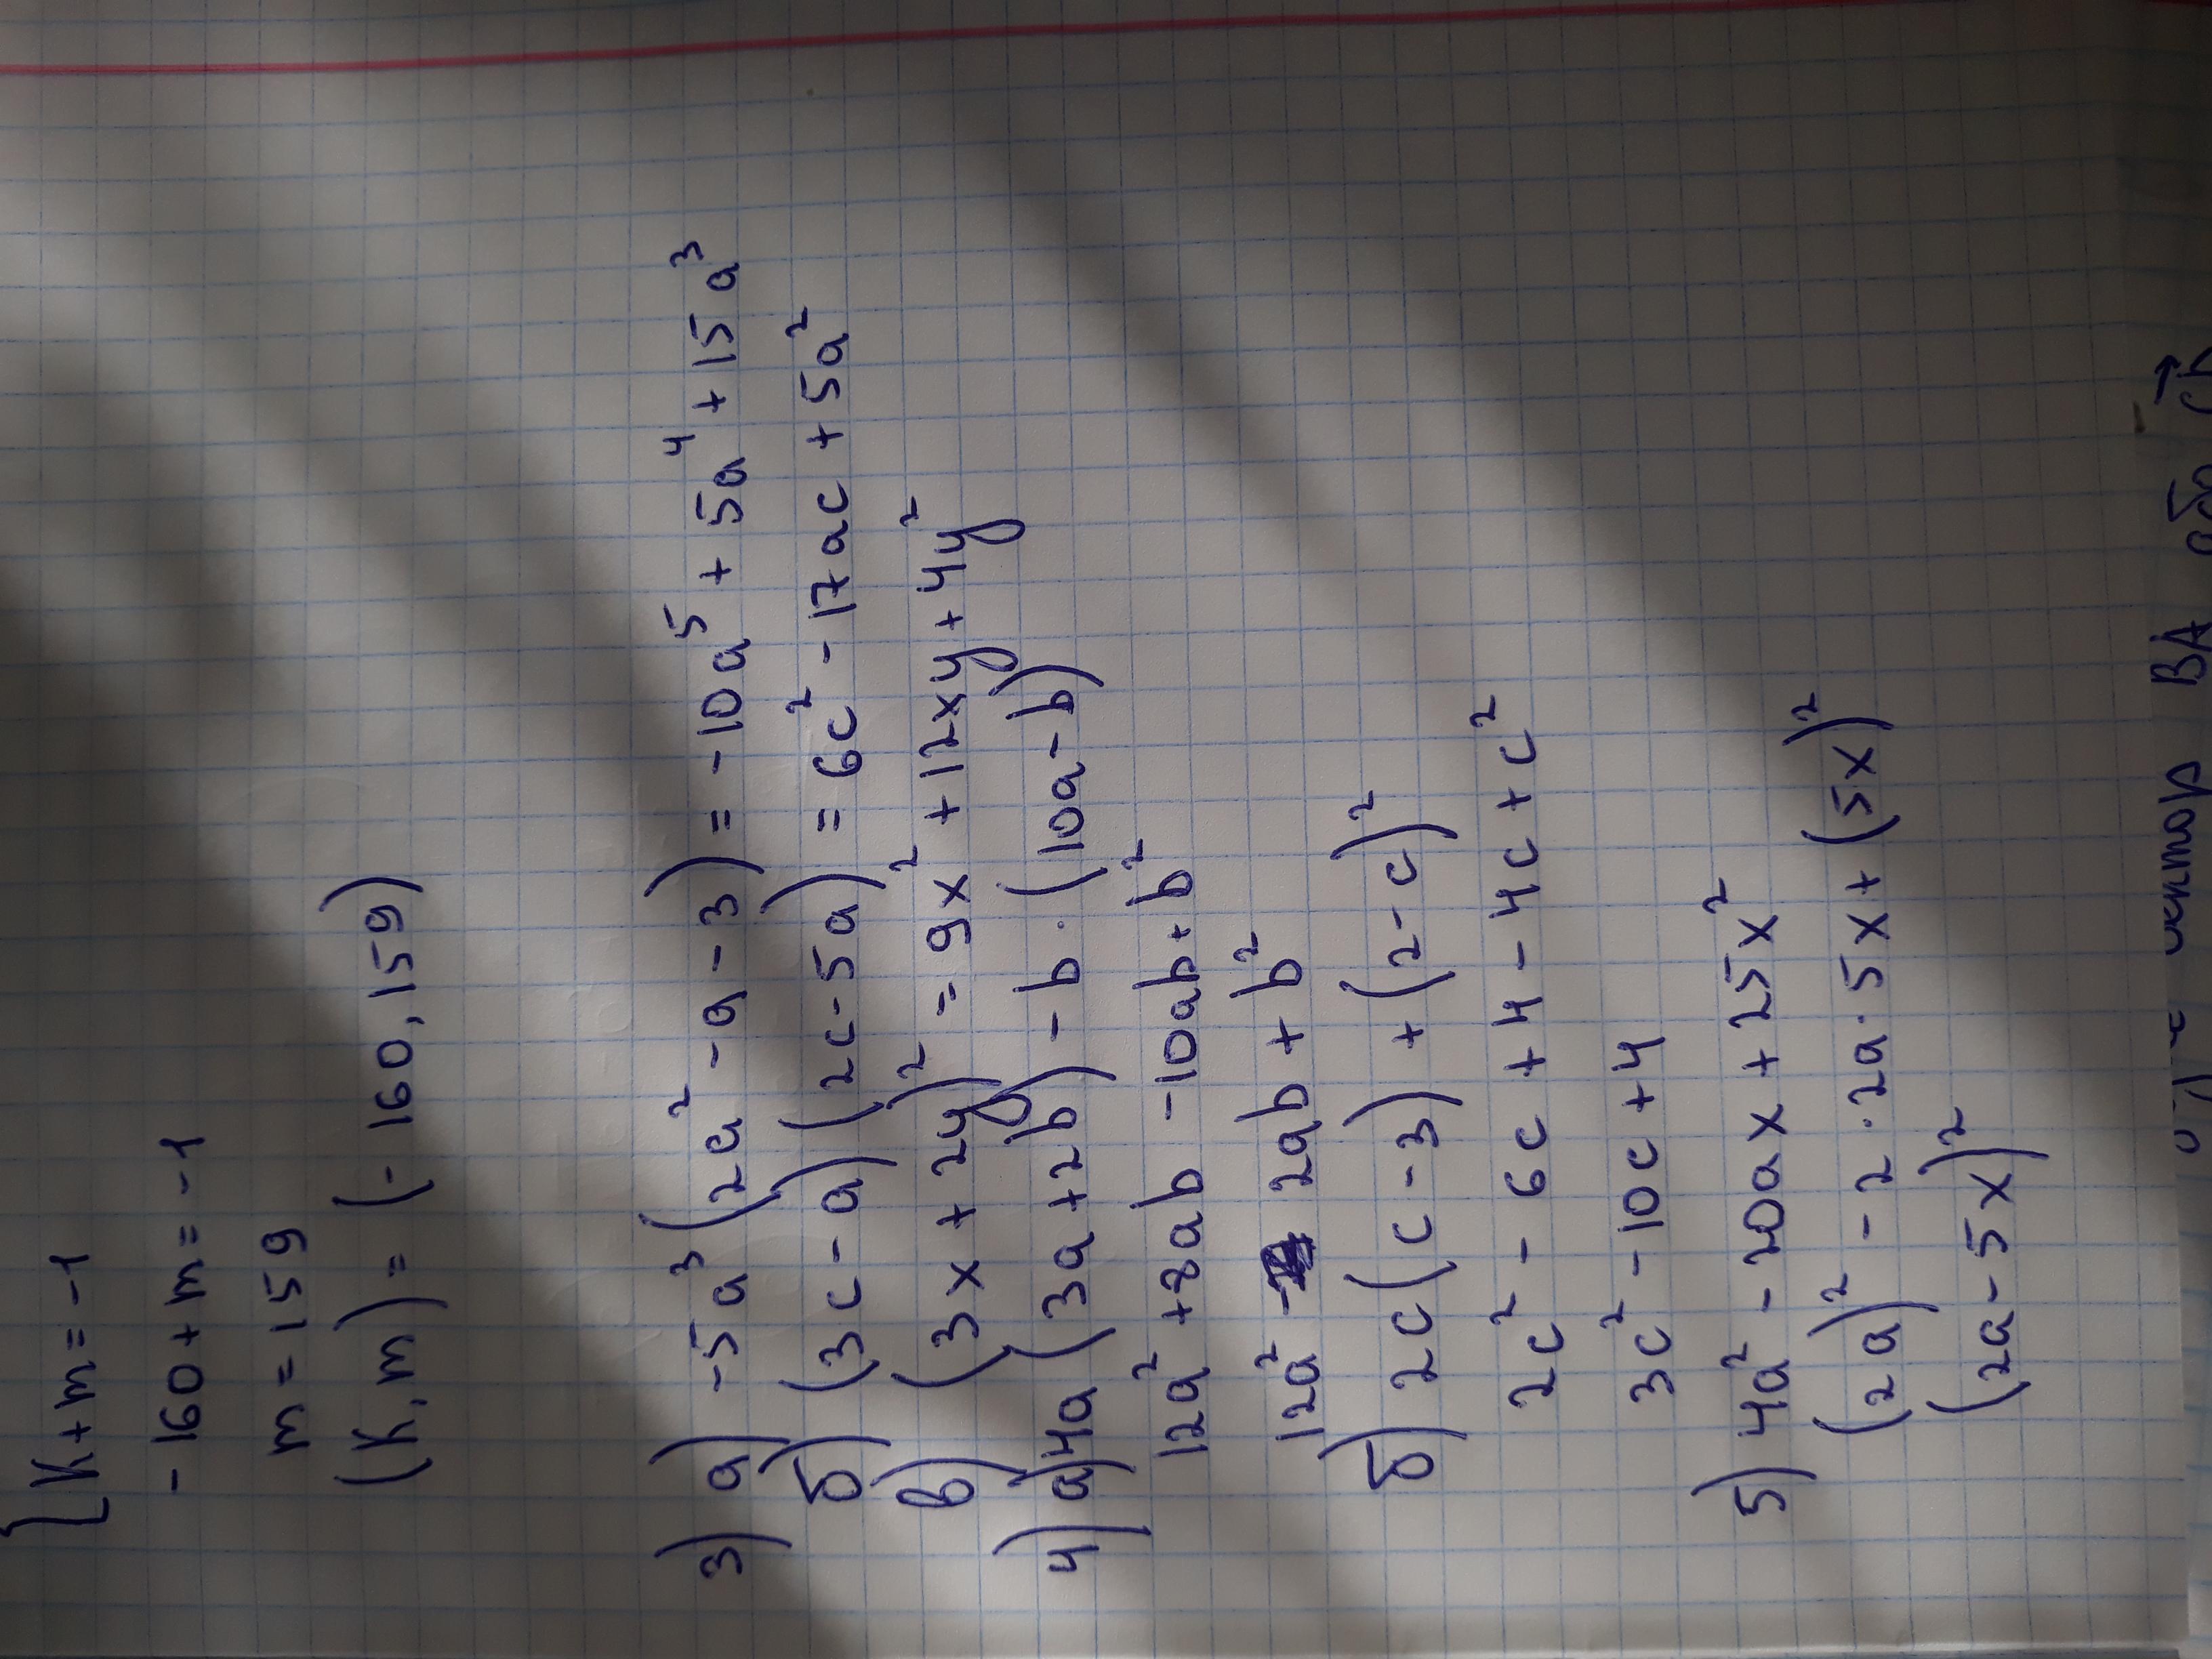 {k+m=-1
-160+m=-1
m=159
(k,m)=(-160,159)
3) а) -5a³(2a²-a-3)=-10a⁵+5a⁴+15a³
б) (3c-a)(2c-5a)=6c²-17ac+5a²
в) (3x+2y)²=9x²+12xy+4y²
4) а) 4a(3a+2b)-b·(10a-b)
12a²+8ab-10ab+b²
12a²-2ab+b²
б) 2c(c-3)+(2-c)²
2c²-6c+4-4c+c²
3c²-10c+4
5) 4a²-20ax+25x²
(2a)²-2·2a·5x+(5x)²
(2a-5x)²
вектор BA або